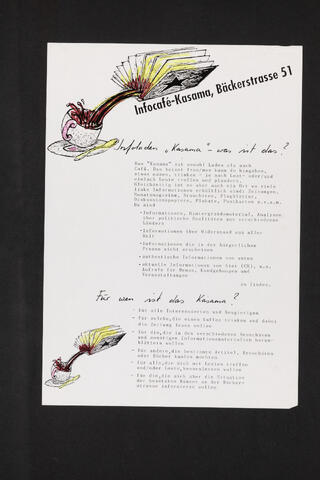 Infocafé-Kasama, Bäckerstrasse 51
Infoladen "Kasama" - was ist das?
Das "Kasama" ist sowohl Laden als auch
Café. Das heisst frau/man kann da hingehen,
etwas essen, trinken - je nach Lust- oder
einfach Leute treffen und plaudern.
Gleichzeitig ist es aber auch ein Ort wo viele
linke Informationen erhältlich sind: Zeitungen,
Broschüren, Flugblätter,
Diskussionspapiere, Plakate, Postkarten u.v.a.m.
Da sind
-Informationen, Hintergrundmaterial, Analysen
über politische Konflikte aus verschiedenen
Ländern
-Informationen über Widerstand aus aller
Welt
-Informationen die in der bürgerlichen
Presse nicht erscheinen
-authentische Informationen von unten
-aktuelle Informationen von hier (CH), z.B.
Aufrufe für Demos, Kundgebungen und
Veranstaltungen
zu finden.
Für wen ist das Kasama?
- für alle Interessierten und Neugierigen
- für solche, die einen Kaffee trinken und dabei
die Zeitung lesen wollen
- für die, die in den verschiedenen Broschüren
und sonstigen Informationsmaterialien herum-
blättern wollen
- für andere, die bestimmte Artikel, Broschüren
oder Bücher kaufen möchten
- für alle, die sich mit Leuten treffen
und/oder Leute kennenlernen wollen
- für die, die sich über die Situation
der besetzten Häuser an der Bäcker-
strasse informieren wollen